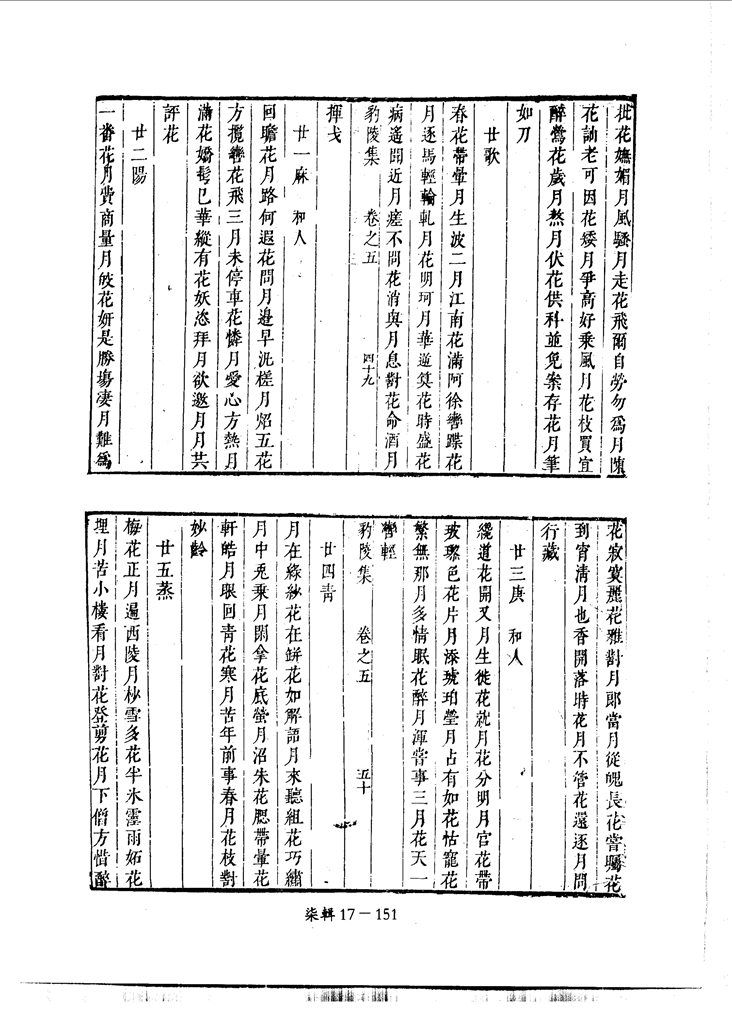 批花嫵媚月風騷月走花飛爾自勞勿爲月陳
花訕老可因花矮月爭高好乘風月花枝買宜
醉鶯花歲月熬月伏花供科並免案存花月筆
如刀
廿歌
春花帶暈月生波二月江南花滿阿徐轡蹀花
月逐馬輕輪軋月花明珂月華逆筭花時盛花
病遙聞近月瘥不問花消與月息對花命酒月
豹陵集 卷之五 四十九
揮戈
廿一麻 和人
回瞻花月路何遐花問月邊早洗槎月炤五花
方攬轡花飛三月未停車花憐月愛心方熱月
滿花嬌髩已華縱有花妖恣拜月欲邀月月共
評花
廿二陽
一番花月費商量月皎花妍是勝塲淒月難爲
花寂寞麗花雅對月郎當月從魄長花嘗矚花
到宵淸月也香開落時花月不管花還逐月問
行藏
廿三庚 和人
繞道花開又月生徙花就月花分明月官花帶
玻瓈色花片月添琥珀瑩月占有如花怙寵花
繁無那月多情眠花醉月渾甞事三月花天一
轡輕
豹陵集 卷之五 五十
廿四靑
月在綠紗花在缾花如解語月來聽組花巧繡
月中兎乘月閑拿花底螢月沼朱花腮帶暈花
軒皓月眼回靑花寒月苦年前事春月花枝對
妙齡
廿五蒸
梅花正月遍西陵月杪雪多花半氷靈雨妬花
埋月苦小樓看月對花登剪花月下僧方惜醉
柒輯 17－151